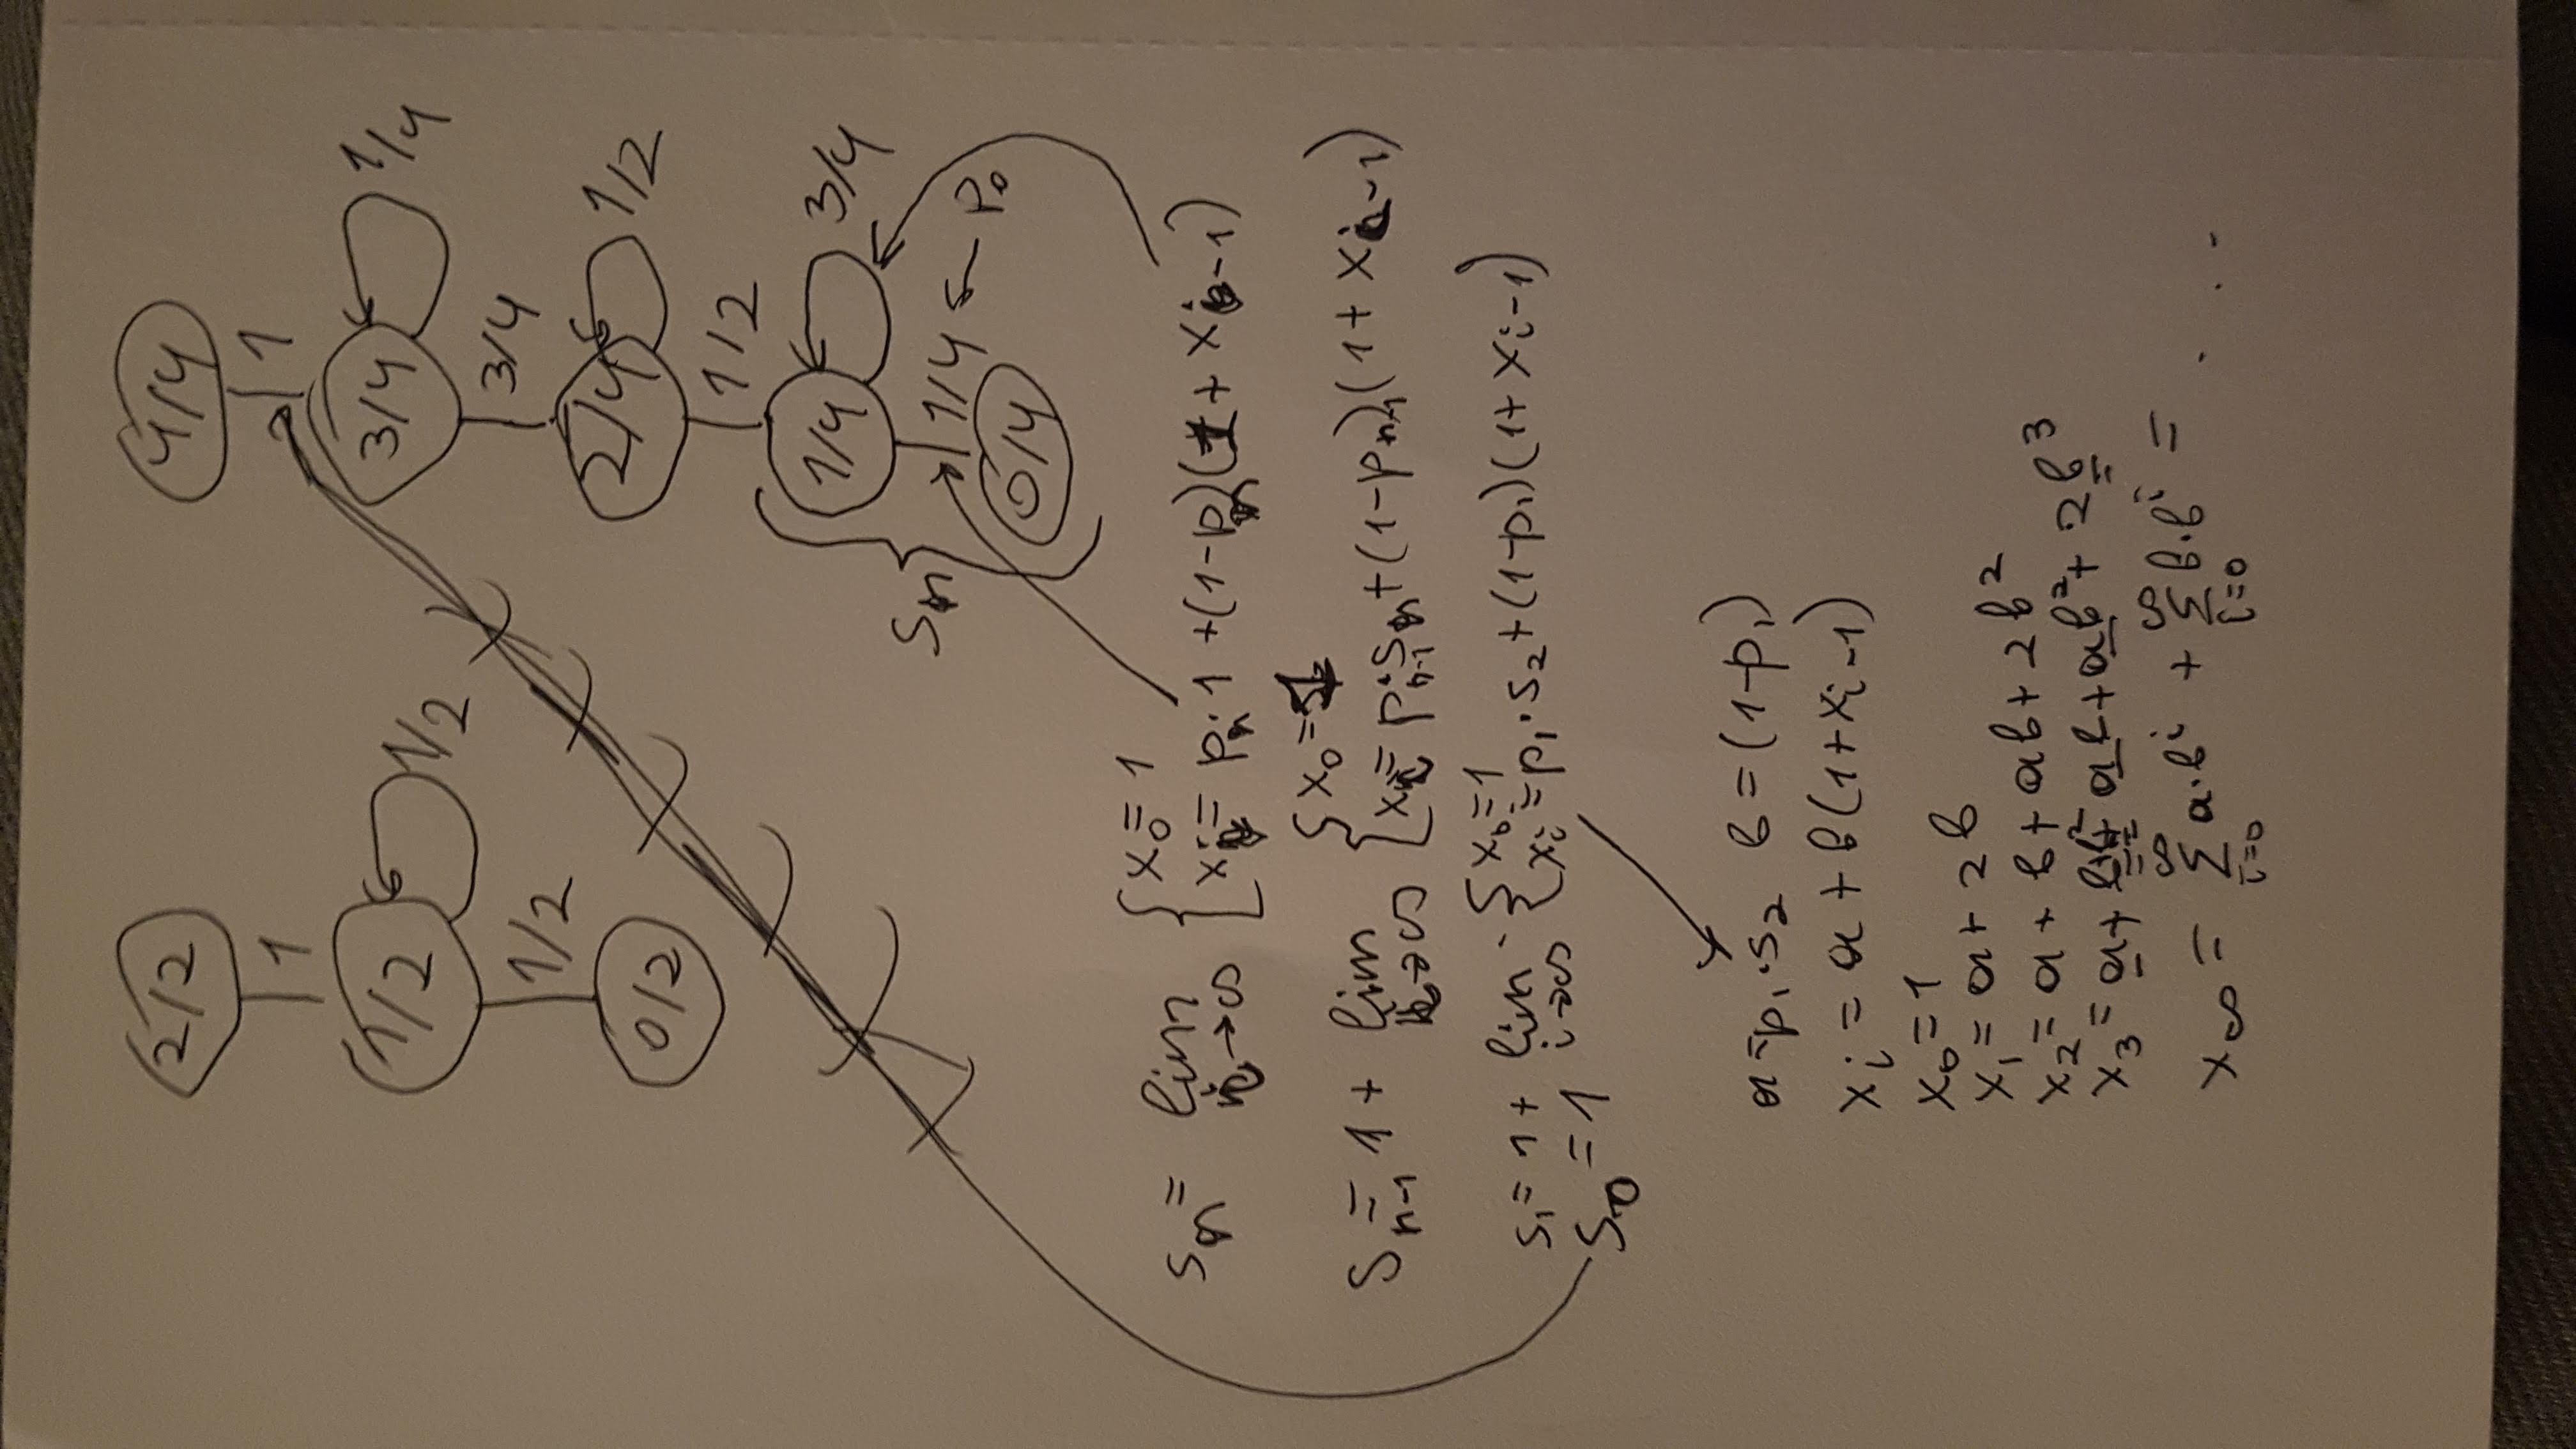 2/2
1
1/2
1/2
1/2
0/2
4/4
1
3/4
1/4
3/4
2/4
1/2
1/2
1/4
3/4
Sₙ
1/4 ← P₀
0/4
Sₙ = lim i→∞ { x₀ = 1
xᵢ = pₙ·1 + (1-pₙ)(1 + xᵢ₋₁)
Sₙ₋₁ = 1 + lim i→∞ { x₀ = 1
xᵢ = pₙ₋₁·Sₙ + (1-pₙ₋₁)(1 + xᵢ₋₁)
S₁ = 1 + lim i→∞ { x₀ = 1
xᵢ = p₁·S₂ + (1-p₁)(1 + xᵢ₋₁)
S₀ = 1
a = p₁·S₂ b = (1-p₁)
xᵢ = a + b(1+xᵢ₋₁)
x₀ = 1
x₁ = a + 2b
x₂ = a + b + ab + 2b²
x₃ = a + b+b²+ ab + ab² + 2b³
x∞ = ∞ Σ i=0 a·bⁱ + ∞ Σ i=0 b·bⁱ = . . -